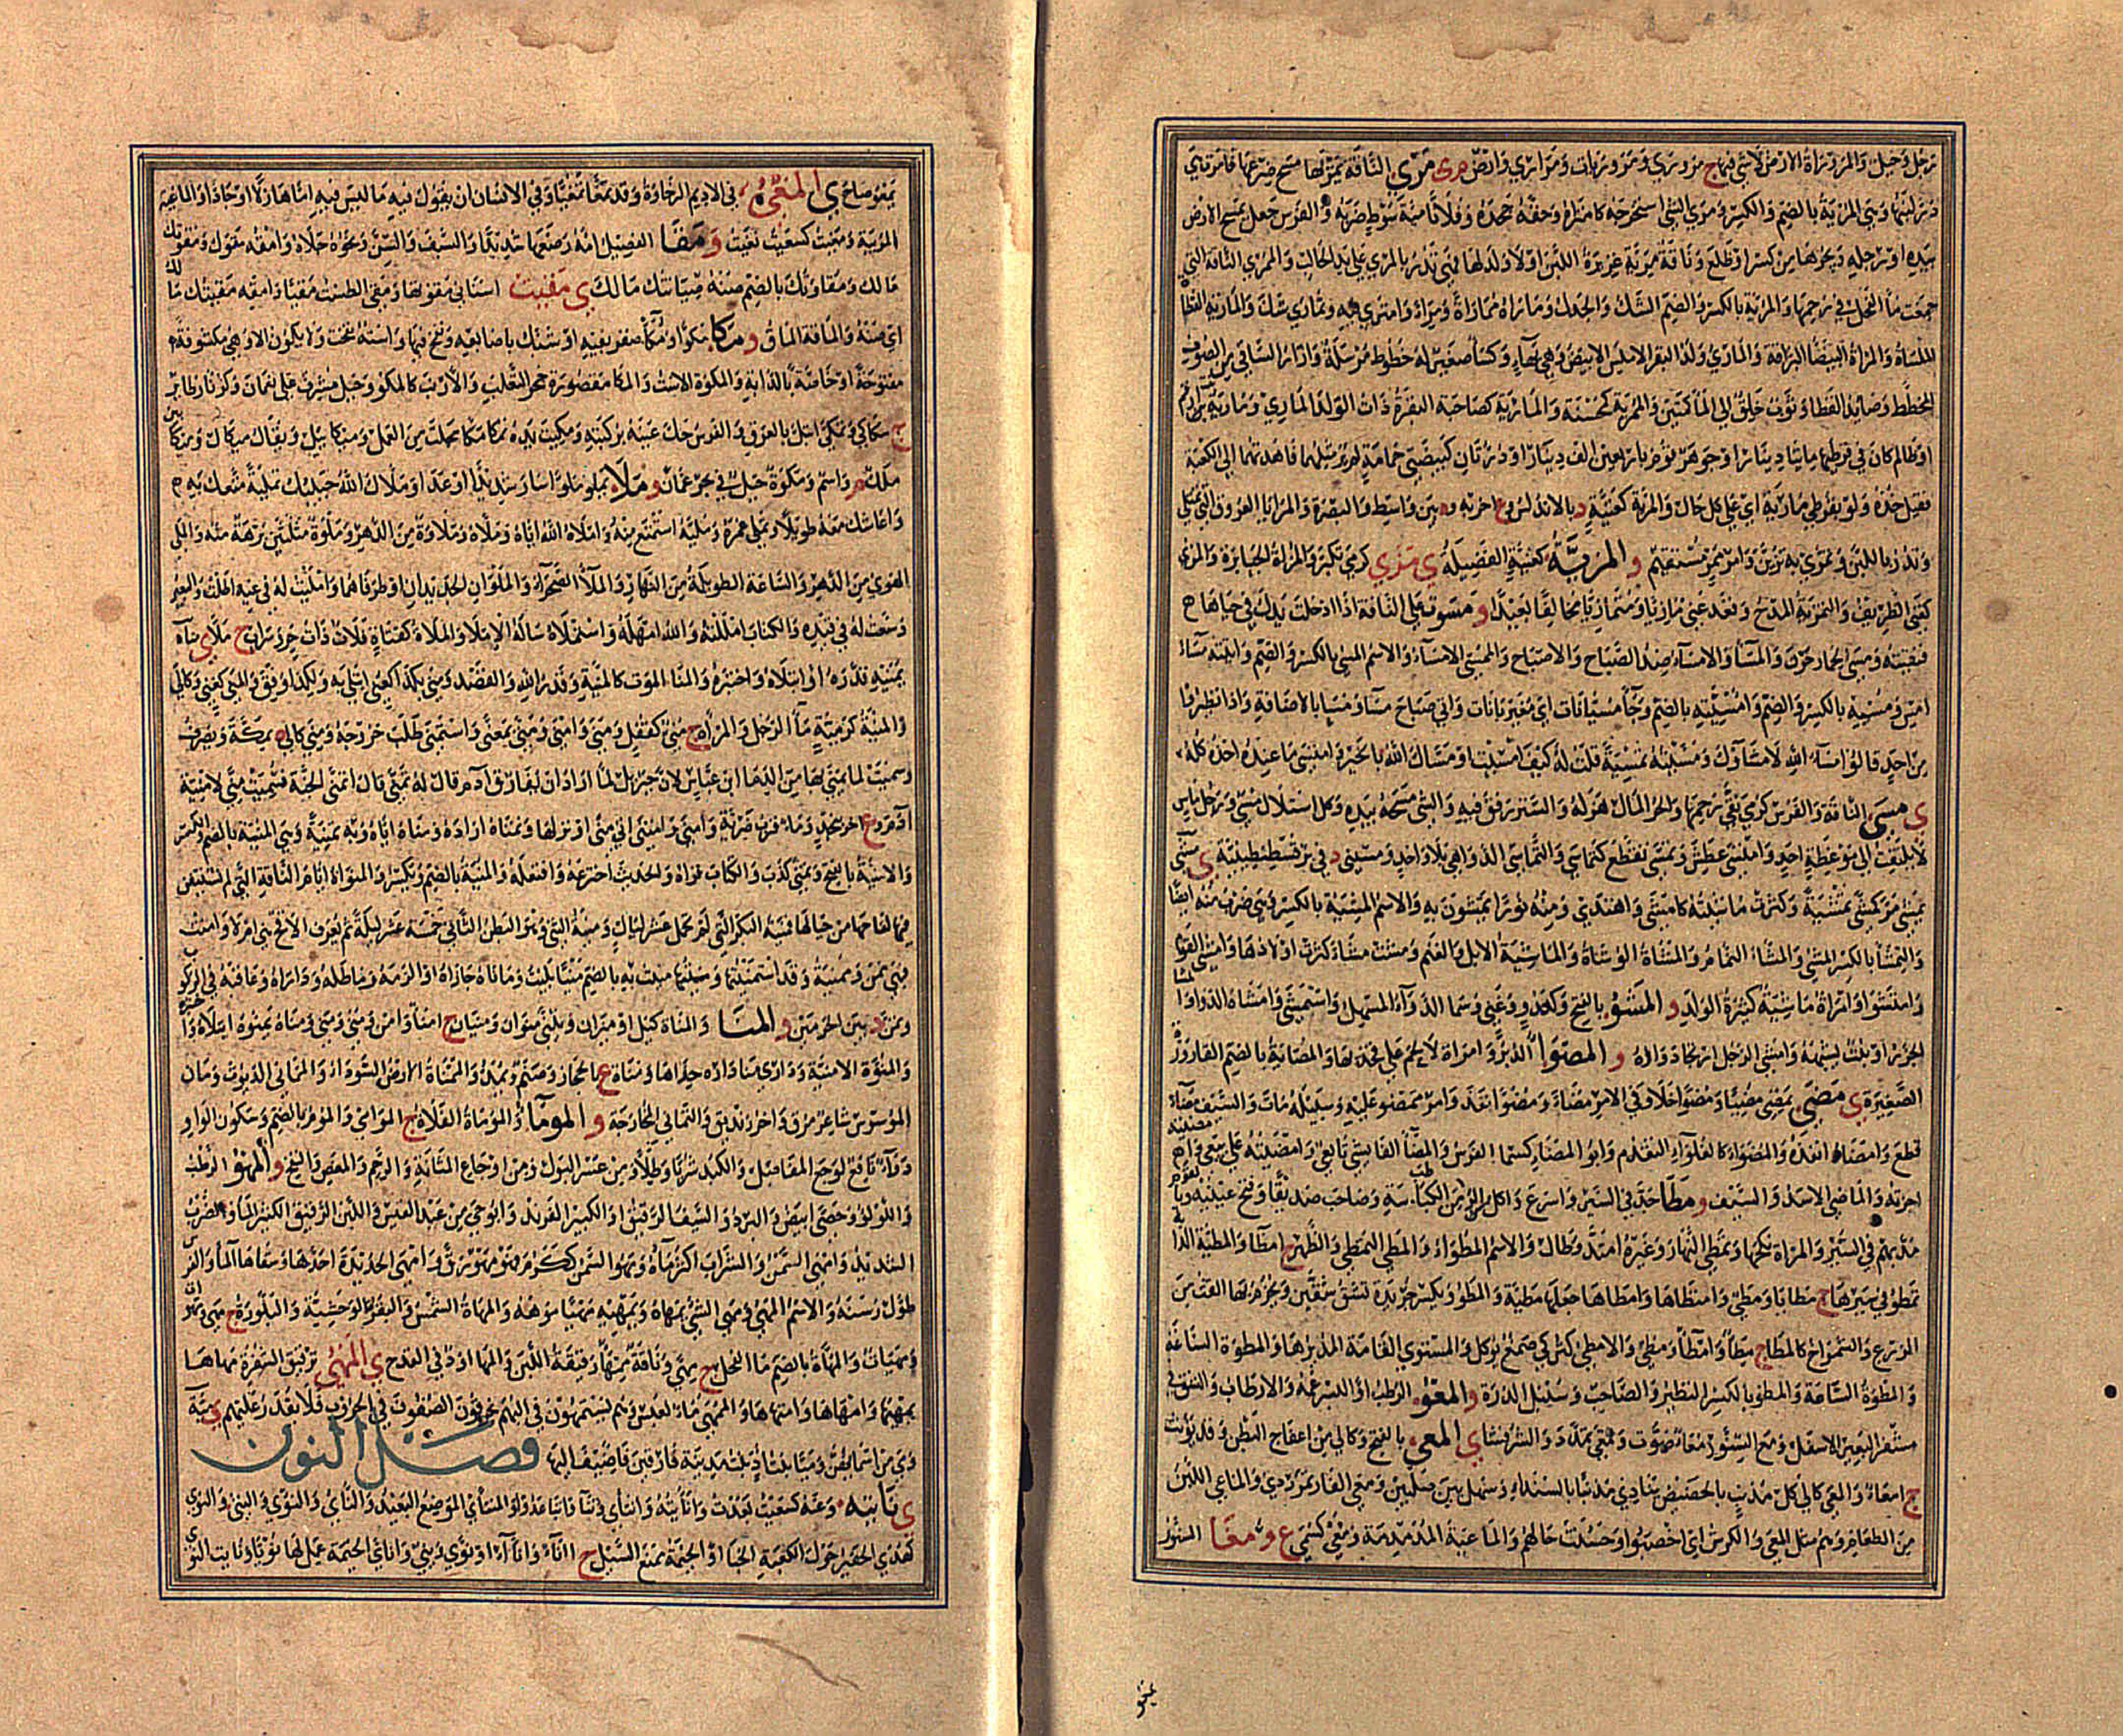 رجل وجبل والمروراة الارض لا شئ فيها ج مرورى ومروريات ومرارى وارض م ى مرى الناقة يمريها مسح ضرعها فامرت هى
در لبنها وهى المرية بالضم والكسر ومرى الشئ استخرجه كامتراه وحقه جحده وفلانا مئة سوط ضربه والفرس جعل يمسح الارض
بيده او رجله ويجرها من كسر او ظلع وناقة مرية غزيرة اللبن او لا ولد لها فهى تدر بالمرى على يد الحالب والممرى الناقة التى
جمعت ماء الفحل فى رحمها والمرية بالكسر والضم الشك والجدل وماراه مماراة ومراء وامترى فيه وتمارى شك والمارية القطاة
الملساة والمراة البيضاء البراقة والمارى ولد البقر الاملس الابيض وهى بهاء وكساء صغير له خطوط مرسلة وازار الساقى من الصوف
المخطط وصائد القطا وثوب خلق الى المأكمتين والممرية كمحسنة والمارية كصاحبة البقرة ذات الولد المارى ومارية
او ظالم كان فى قرطها مائتا دينار او جوهر قوم باربعين الف دينار او درتان كبيضتى حمامة لم ير مثلهما فاهدتهما الى الكعبة
فقيل خذه ولو بقرطى مارية اى على كل حال والمرية كغنية د بالاندلس وع اخر وة بين واسط والبصرة والمرايا العروق التى تمتلئ
وتدر باللبن وتمرى به تزين وامر ممر مستقيم و المزية كغنية الفضيلة ى مزى كرمى تكبر والمزاة الجبابرة والمزى
كغنى الظريف والتمزية المدح وقعد عنى مازيا ومتمازيا مخالفا بعيدا و مسوت على الناقة اذا ادخلت يدك فى حيائها
فنقيته ومسى الحمار حرن والمساء والامساء ضد الصباح والاصباح والممسى الامساء والاسم المسى بالكسر والضم واتيته مساء
امس ومسيه بالكسر والضم وامسيته بالضم وجاء مسيانات اى مغيربانات واتى صباح مساء ومساء بالاضافة واذا تطيروا
من احد قالوا مساء الله لا مساؤك ومسيته تمسية قلت له كيف امسيت او مساك الله بالخير وامتسى ما عنده اخذه كله
ى مسى الناقة والفرس كرمى نقى رحمها والحر المال هزله والسير رفق فيه والشئ مسحه بيده وكل استلال مسى ورجل ماس
لا يلتفت الى موعظة احد وامتسى عطش وتمسى تقطع كتماسى والتماسى الدواهى بلا واحد ومسينى د فى بر قسطنطينية ى مشى
يمشى مر كمشى تمشية وكثرت ماشيته كامشى واهتدى ومنه نورا تمشون به والاسم المشية بالكسر وهى ضرب منه ايضا
والتمشاء بالكسر المشى والمشاء النمام والمشاة الوشاة والماشية الابل والغنم ومشت مشاء كثرت اولادها وامشى القوم
وامتشوا وامراة ماشية كثيرة الولد و المشو بالفتح وكعدو وغنى وسما الدواء المسهل واستمشى وامشاه الدواء
الجزر او نبت يشبهه وامشى الرجل ارتجاد واؤه و المصواء الدبر وامراة لا لحم على فخذيها والمصاية بالضم القارورة
الصغيرة ى مضى يمضى مضيا ومضوا خلا وفى الامر مضاء ومضوا نفذ وامر ممضو عليه وسبيله مات والسيف مضاء
قطع وامضاه انفذه والمضواء كالغلواء التقدم وابو المضاء كسماء الفرس والمضاء الفايشى تابعى وامضيته على بيعى
اجزته والماضى الاسد والسيف و مطا جد فى السير واسرع واكل الرطب من الكباسة وصاحب صديقا وفتح عينيه وبالقوم
مد بهم فى السير والمراة نكحها وتمطى النهار وغيره امتد وطال والاسم المطواء والمطى التمطى والظهر ج امطاء والمطية الدابة
تمطو فى سيرها ج مطايا ومطى وامتطاها وامطاها جعلها مطية والمطو ويكسر جريدة تشق شقين ويحزم بها القت من
الزرع والشمراخ كالمطا ج مطاء وامطاء ومطى والامطى كتركى صمغ يؤكل والمستوى القامة المديدها والمطوة الساعة
والمطوة الساعة والمطو بالكسر النظير والصاحب وسنبل الذرة و المعو الرطب او البسر عمه والارطاب والشق فى
مشفر البعير الاسفل ومع السنور معاء صوت وتمعى تمدد والشر فشا ى المعى بالفتح وكالى من اعفاج البطن وقد يؤنث
ج امعاء والمعى كالى كل مذنب بالحضيض ينادى مذنبا بالسند وسهل بين صلبين ومعى الفار تمر ردى والماعى اللين
من الطعام وهم مثل المعى والكرش اى اخصبوا وحسنت حالهم والماعية المدمدمة ومعى كسمى ع و مغا السنور
يمغو صاح ى المغى فى الاديم الرخاوة وقد تمغا تمغيا وفى الانسان ان يقول فيه ما ليس فيه اما هازلا او جادا والماغية
المريبة ومغيت كسعيت نغيت و مقا الفصيل امه رضعها شديدا والسيف والسن ونحوه جلاه وامقه مقوك ومقوتك
مالك ومقاوتك بالضم صنه صيانتك مالك ى مقيت اسنانى مقوتها ومقى الطست مقيا وامقه مقيتك مالك
اى صنه والماقة الماق و مكا مكوا ومكاء صفر بفيه او شبك باصابعه ونفخ فيها واسته نفخت ولا يكون الا وهى مكشوفة
مفتوحة او خاصة بالدابة والمكوة الاست والمكا مقصورة جحر الثعلب والارنب كالمكو وجبل مشرف على نعمان وكزنار طاير
ج مكاكى وتمكى ابتل بالعرق والفرس حك عينه بركبته ومكيت يده تمكا مكا مجلت من العمل وميكائيل ويقال ميكال وميكائين
ملك م واسم ومكوة جبل فى بحر عمان و ملا يملو ملوا سار سديدا او عدا وملاك الله حبيبك تملية متعك به
واعاشك معه طويلا وتملى عمره ومليه استمتع منه واملاه الله اياه وملاه وملاوة من الدهر وملوة مثلثين برهة منه والملى
الهوى من الدهر والساعة الطويلة من النهار والملا الصحراء والملوان الجديدان او طرفاهما وامليت له فى غيه اطلت والبعير
وسعت له فى قيده والكتاب امللته والله امهله واستملاه ساله الاملاء والملاة كقناة فلاة ذات حر وسراب ج ملا ى مناه
يمنيه قدره او ابتلاه واختبره والمنا الموت كالمنية وقدر الله والقصد ومنى بكذا كعنى ابتلى به ولكذا وفق والمنى كغنى وكالى
والمنية كرمية ماء الرجل والمراة ج منى كقفل ومنى وامنى ومنى بمعنى واستمنى طلب خروجه ومنى كالى ة بمكة وتصرف
وسميت لما يمنى بها من الدماء ابن عباس لان جبريل لما اراد ان يفارق ادم قال له تمن قال اتمنى الجنة فسميت منى لامنية
ادم وع اخر بنجد وماء قرب ضرية وامنى وامتنى اتى منى او نزلها وتمناه اراده ومناه اياه وبه تمنية وهى المنية بالضم والكسر
والامنية بالضم وتمنى كذب والكتاب قراه والحديث اخترعه وافتعله والمنية بالضم وتكسر والمنوة ايام الناقة التى لم تستيقن
فيها لقاحها من حيالها فمنية البكر التى لم تحمل عشر ليال ومنية الثنى وهو البطن الثانى خمس عشرة ليلة ثم تعرف الاقح هى ام لا وامنت
فهى ممن وممنية وقد استمنيتها ومنيت به بالضم منيا بليت وماناه جازاه او الزمه وماطله وداراه وعاقبه فى الركوب
وتمن د بين الحرمين و المنا والمناة كيل او ميزان ويثنى منوان ومنيان ج امناء وامن ومنى ومنى ومناه يمنوه ابتلاه واختبره
والمنوة الامنية ودارى منا داره حذاها ومناة ع بالحجاز وصنم ويمد والممناة الارض السوداء والمتانى الديوث ومان
الموسوس شاعر مزق واخر زنديق والتمانى المخارجة و الموماء والموماة الفلاة ج الموامى والموم بالضم وسكون الواو
دواء نافع لوجع المفاصل والكبد شربا وطلاء ومن عسر البول ومن اوجاع المثانة والرحم والمغص والنفخ و المهو الرطب
واللؤلؤ وحصى ابيض والبرد والسيف الرقيق او الكثير الفرند وابو حى من عبد القيس واللبن الرقيق الكثير الماء والضرب
الشديد وامهى السمن والشراب اكثر ماءه ومهو السمن ككرم فهو مهو رق وامهى الحديدة احدها وسقاها الماء والفرس
طول رسنه والاسم المهى ومهى الشئ يمهاه ويمهيه مهيا موهه والمهاة الشمس والبقرة الوحشية والبلورة ج مهى ومهوات
ومهيات والمهاة بالضم ماء الفحل ج مهى وناقة ممهاء رقيقة اللبن والمها اود فى القدح ى المهى ترقيق الشفرة مهاها
يمهيها وامهاها وامتهاها والممهى ماء لعبس وهم يستمهون فى البهم يخرقون الصفوف فى الحروب فلا يقدر عليهم ى مية
ومى من اسمائهن ومية بنت اد بنت مدينة فارقين فاضيفت اليها فصل النون
ى نايته وعنه كسعيت بعدت وانايته وانتاى فنائى تباعدوا والمنتاى الموضع البعيد والناى والنؤى والنئى والنوى
كهدى الحفير حول الكعبة الخباء او الخيمة يمنع السيل ج اناء واناء او نؤى ونئى واناى الخيمة عمل لها نؤيا ونايت النؤى
يمغو